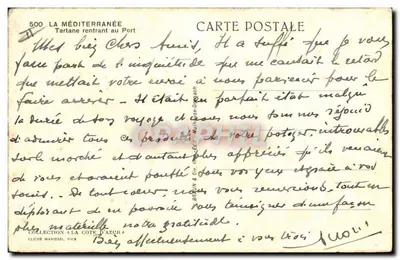 500 LA MÉDITERRANÉE
Tartane rentrant au Port
CARTE POSTALE
II
Mes biens Chers Amis, Il a suffi que je vous
fasse part de l'inquiétude que me causait le retard
que mettait votre envoi à nous parvenir pour le
faire arriver - Il était en parfait état malgré
la durée de son voyage et nous nous sommes réjouis
d'admirer tous ces produits de votre potager, introuvables
sur le marché et d'autant plus appréciés qu'ils venaient
de vous et avaient poussé sous vos yeux et grâce à vos
soins. De tout coeur, nous vous remercions, tout en
déplorant de ne pouvoir vous témoigner d'une façon
plus matérielle notre gratitude.
Bien affectueusement à vous trois
COLLECTION "LA COTE D'AZUR"